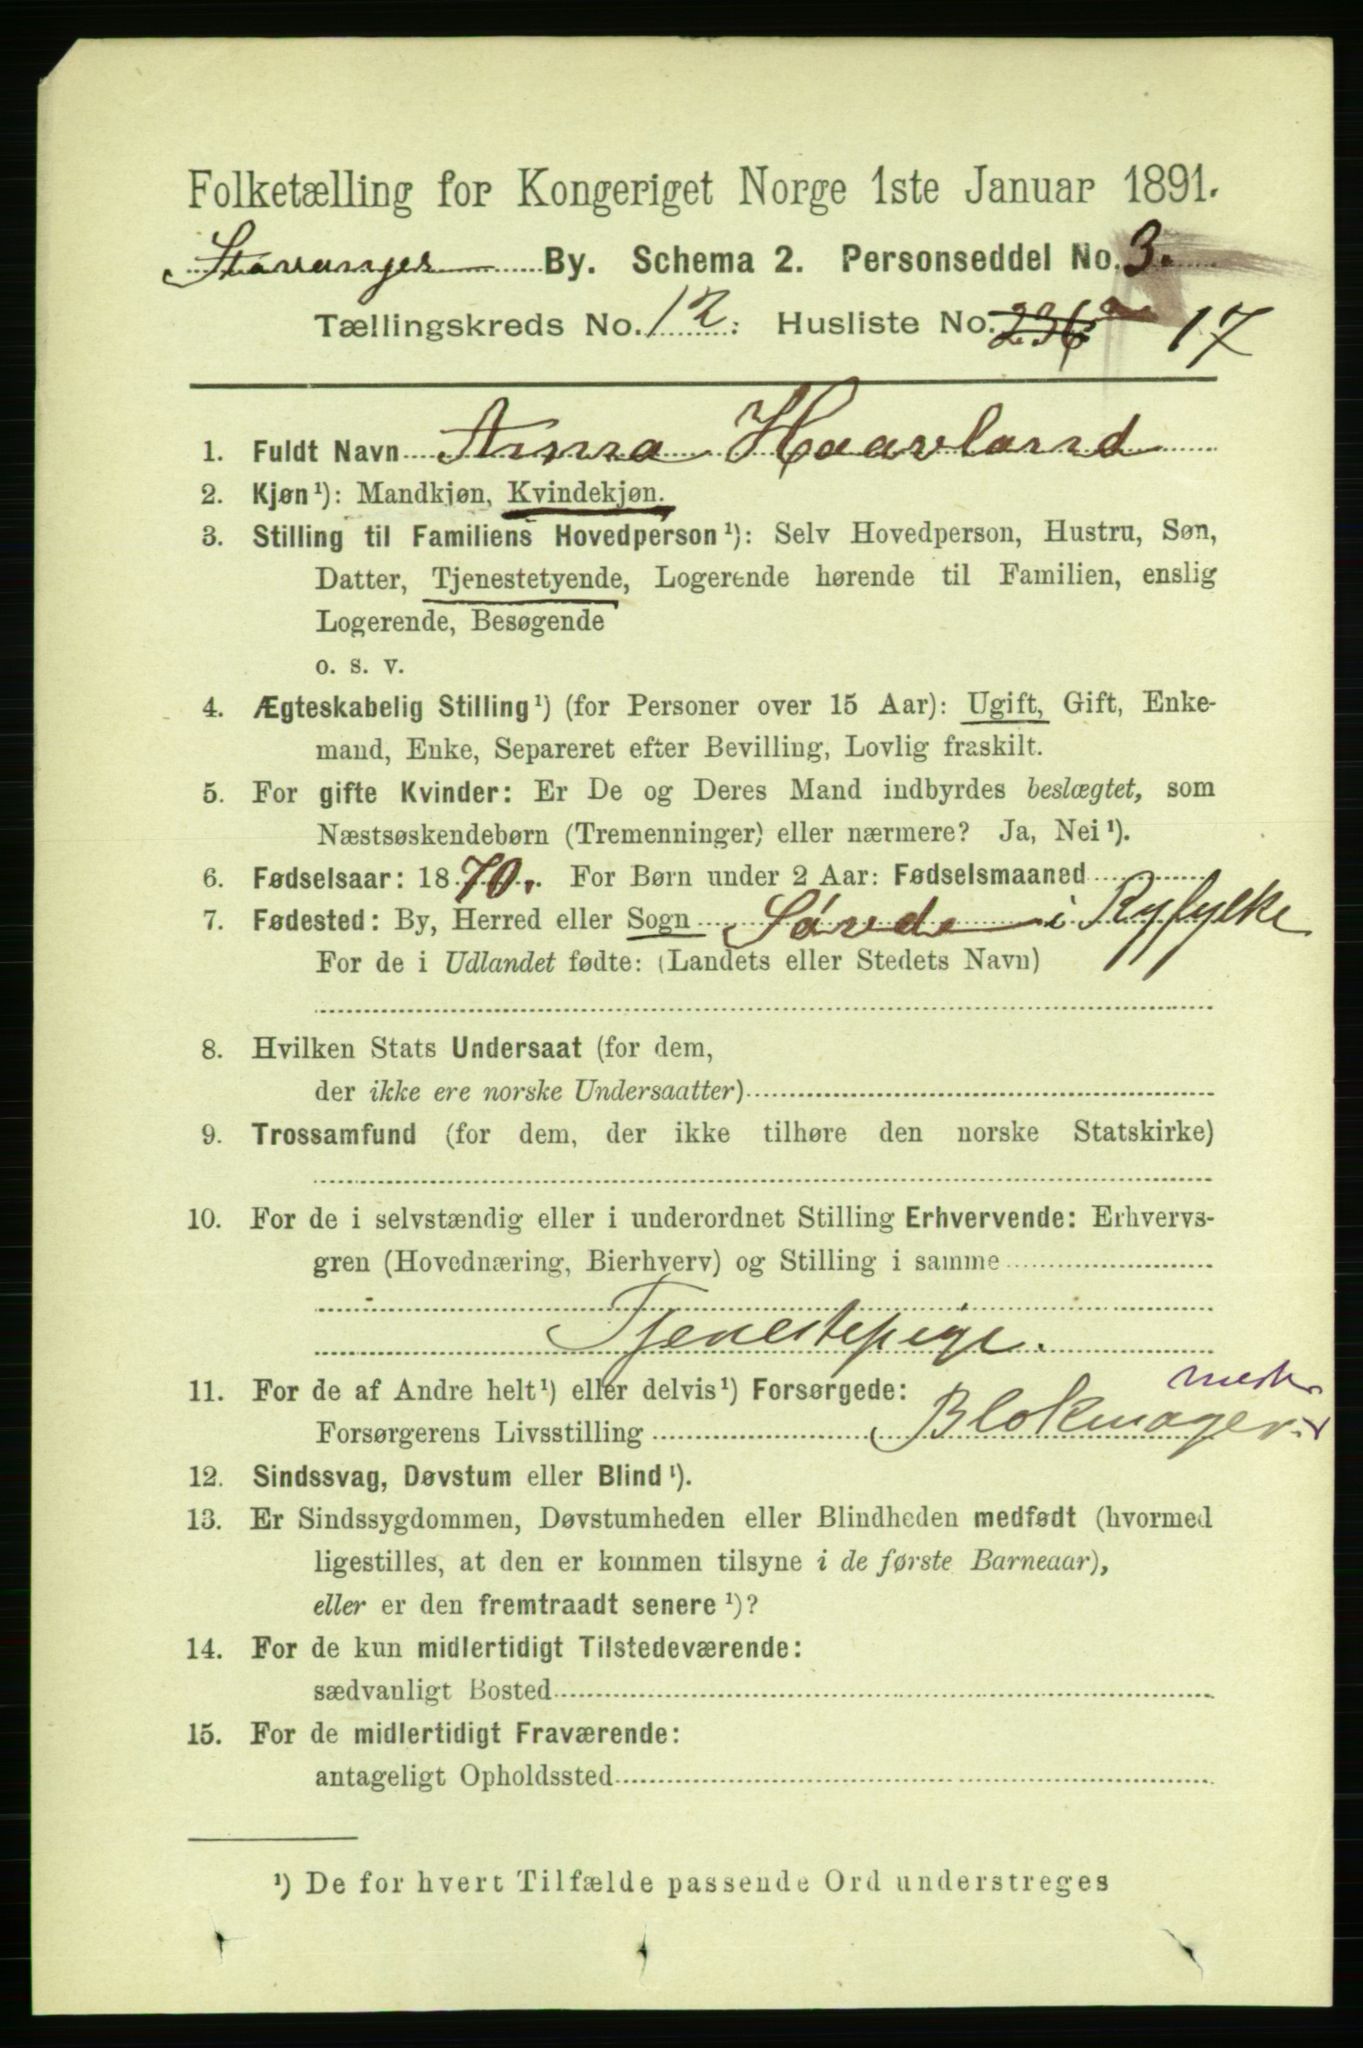 Folketælling for Kongeriget Norge 1ste Januar 1891.
Stavanger By. Schema 2. Personseddel No. 3.
Tællingskreds No. 12: Husliste No. 236a 17
1. Fuldt Navn Anna Haavland
2. Kjøn¹): Mandkjøn, Kvindekjøn.
3. Stilling til Familiens Hovedperson¹): Selv Hovedperson, Hustru, Søn,
Datter, Tjenestetyende, Logerende hørende til Familien, enslig
Logerende, Besøgende
o. s. v.
4. Ægteskabelig Stilling¹) (for Personer over 15 Aar): Ugift, Gift, Enke-
mand, Enke, Separeret efter Bevilling, Lovlig fraskilt.
5. For gifte Kvinder: Er De og Deres Mand indbyrdes beslægtet, som
Næstsøskendebørn (Tremenninger) eller nærmere? Ja, Nei¹).
6. Fødselsaar: 1870. For Børn under 2 Aar: Fødselsmaaned
7. Fødested: By, Herred eller Sogn Søvde i Ryfylke
For de i Udlandet fødte: (Landets eller Stedets Navn)
8. Hvilken Stats Undersaat (for dem,
der ikke ere norske Undersaatter)
9. Trossamfund (for dem, der ikke tilhøre den norske Statskirke)
10. For de i selvstændig eller i underordnet Stilling Erhvervende: Erhvervs-
gren (Hovednæring, Bierhverv) og Stilling i samme
Tjenestepige.
11. For de af Andre helt¹) eller delvis¹) Forsørgede:
mester
Forsørgerens Livsstilling Blokmager
12. Sindssvag, Døvstum eller Blind¹).
13. Er Sindssygdommen, Døvstumheden eller Blindheden medfødt (hvormed
ligestilles, at den er kommen tilsyne i de første Barneaar),
eller er den fremtraadt senere¹)?
14. For de kun midlertidigt Tilstedeværende:
sædvanligt Bosted
15. For de midlertidigt Fraværende:
antageligt Opholdssted
¹) De for hvert Tilfælde passende Ord understreges